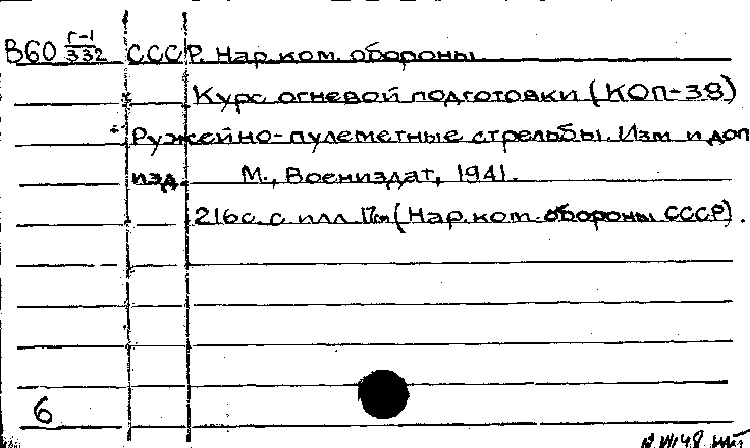 В60 Г-1/332 СССР. Нар. ком. обороны.
Курс огневой подготовки (КОП-38)
Ружейно-пулеметные стрельбы. Изм. и доп.
изд. М., Воениздат, 1941.
216 с. с илл. 17см (Нар. ком. обороны СССР).
6